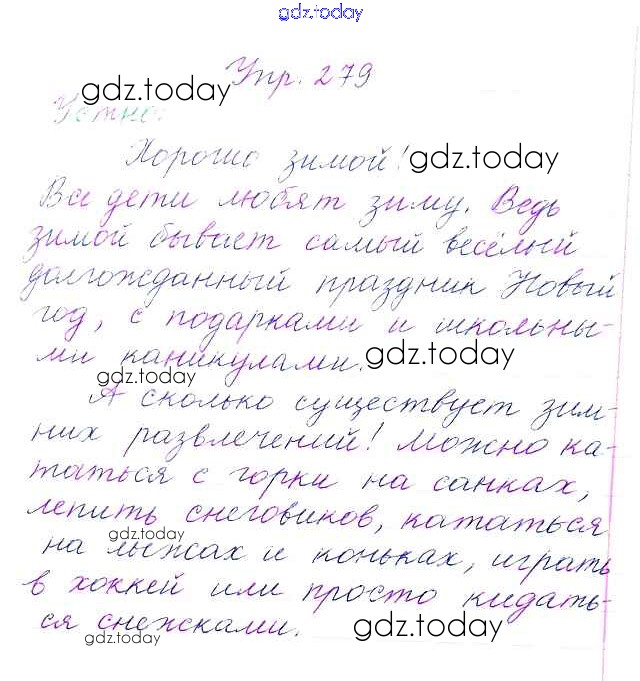 gdz.today
Упр. 279
gdz.today
Устно:
Хорошо зимой!
gdz.today
Все дети любят зиму. Ведь
зимой бывает самый весёлый
долгожданный праздник Новый
год, с подарками и школьны-
ми каникулами.
gdz.today
gdz.today
А сколько существует зим-
них развлечений! Можно ка-
таться с горки на санках,
лепить снеговиков, кататься
gdz.today
на лыжах и коньках, играть
в хоккей или просто кидать-
ся снежками.
gdz.today
gdz.today